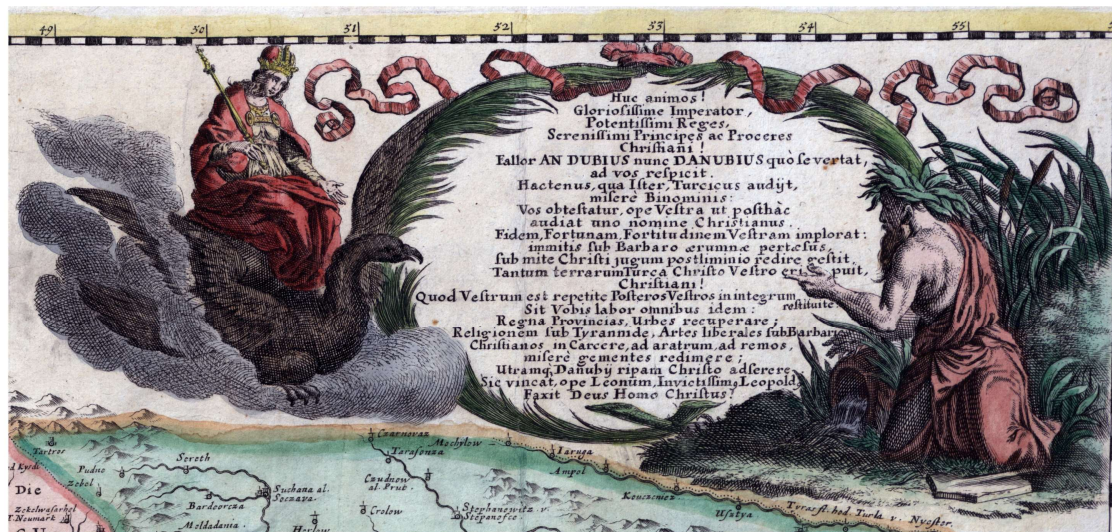 49 50 51 52 53 54 55
Huc animos!
Gloriosissime Imperator,
Potentissimi Reges,
Serenissimi Principes ac Proceres
Christiani!
Fallor AN DUBIUS nunc DANUBIUS quò se vertat,
ad vos respicit.
Hactenus, qua Ister, Turcicus audijt,
miserè Binominis:
Vos obtestatur, ope Vestra ut posthàc
audiat uno nomine Christianus.
Fidem, Fortunam, Fortitudinem Vestram implorat:
immitis sub Barbaro ærumnæ pertæsus,
sub mite Christi jugum postliminio redire gestit.
Tantum terrarum Turca Christo Vestro eri puit,
Christiani!
Quod Vestrum est repetite Posteros Vestros in integrum
restituite
Sit Vobis labor omnibus idem:
Regna Provincias, Urbes recuperare;
Religionem sub Tyrannide, Artes liberales sub Barbarie
Christianos in Carcere, ad aratrum, ad remos,
miserè gementes redimere;
Utramq, Danubij ripam Christo adserere
Sic vincat, ope Leonum, Invictissimq Leopold,
Faxit Deus Homo Christus!
Czarnovaz
Mochylow
Iaruga
Tartros
Tarasonza
Kysdi
Pudno
Sereth
Ampol
Zebel
Czudnow
al. Prut.
Die
Suchana al.
Soczava.
Kouczenoz
Zekelwasarhel
Bardeorcza
Crolow
Stephanowitz v.
Stepanofce.
Usztya
Tyras fl. hod Turla v. Nyester.
T. Neumark
Moldadania
Horlow